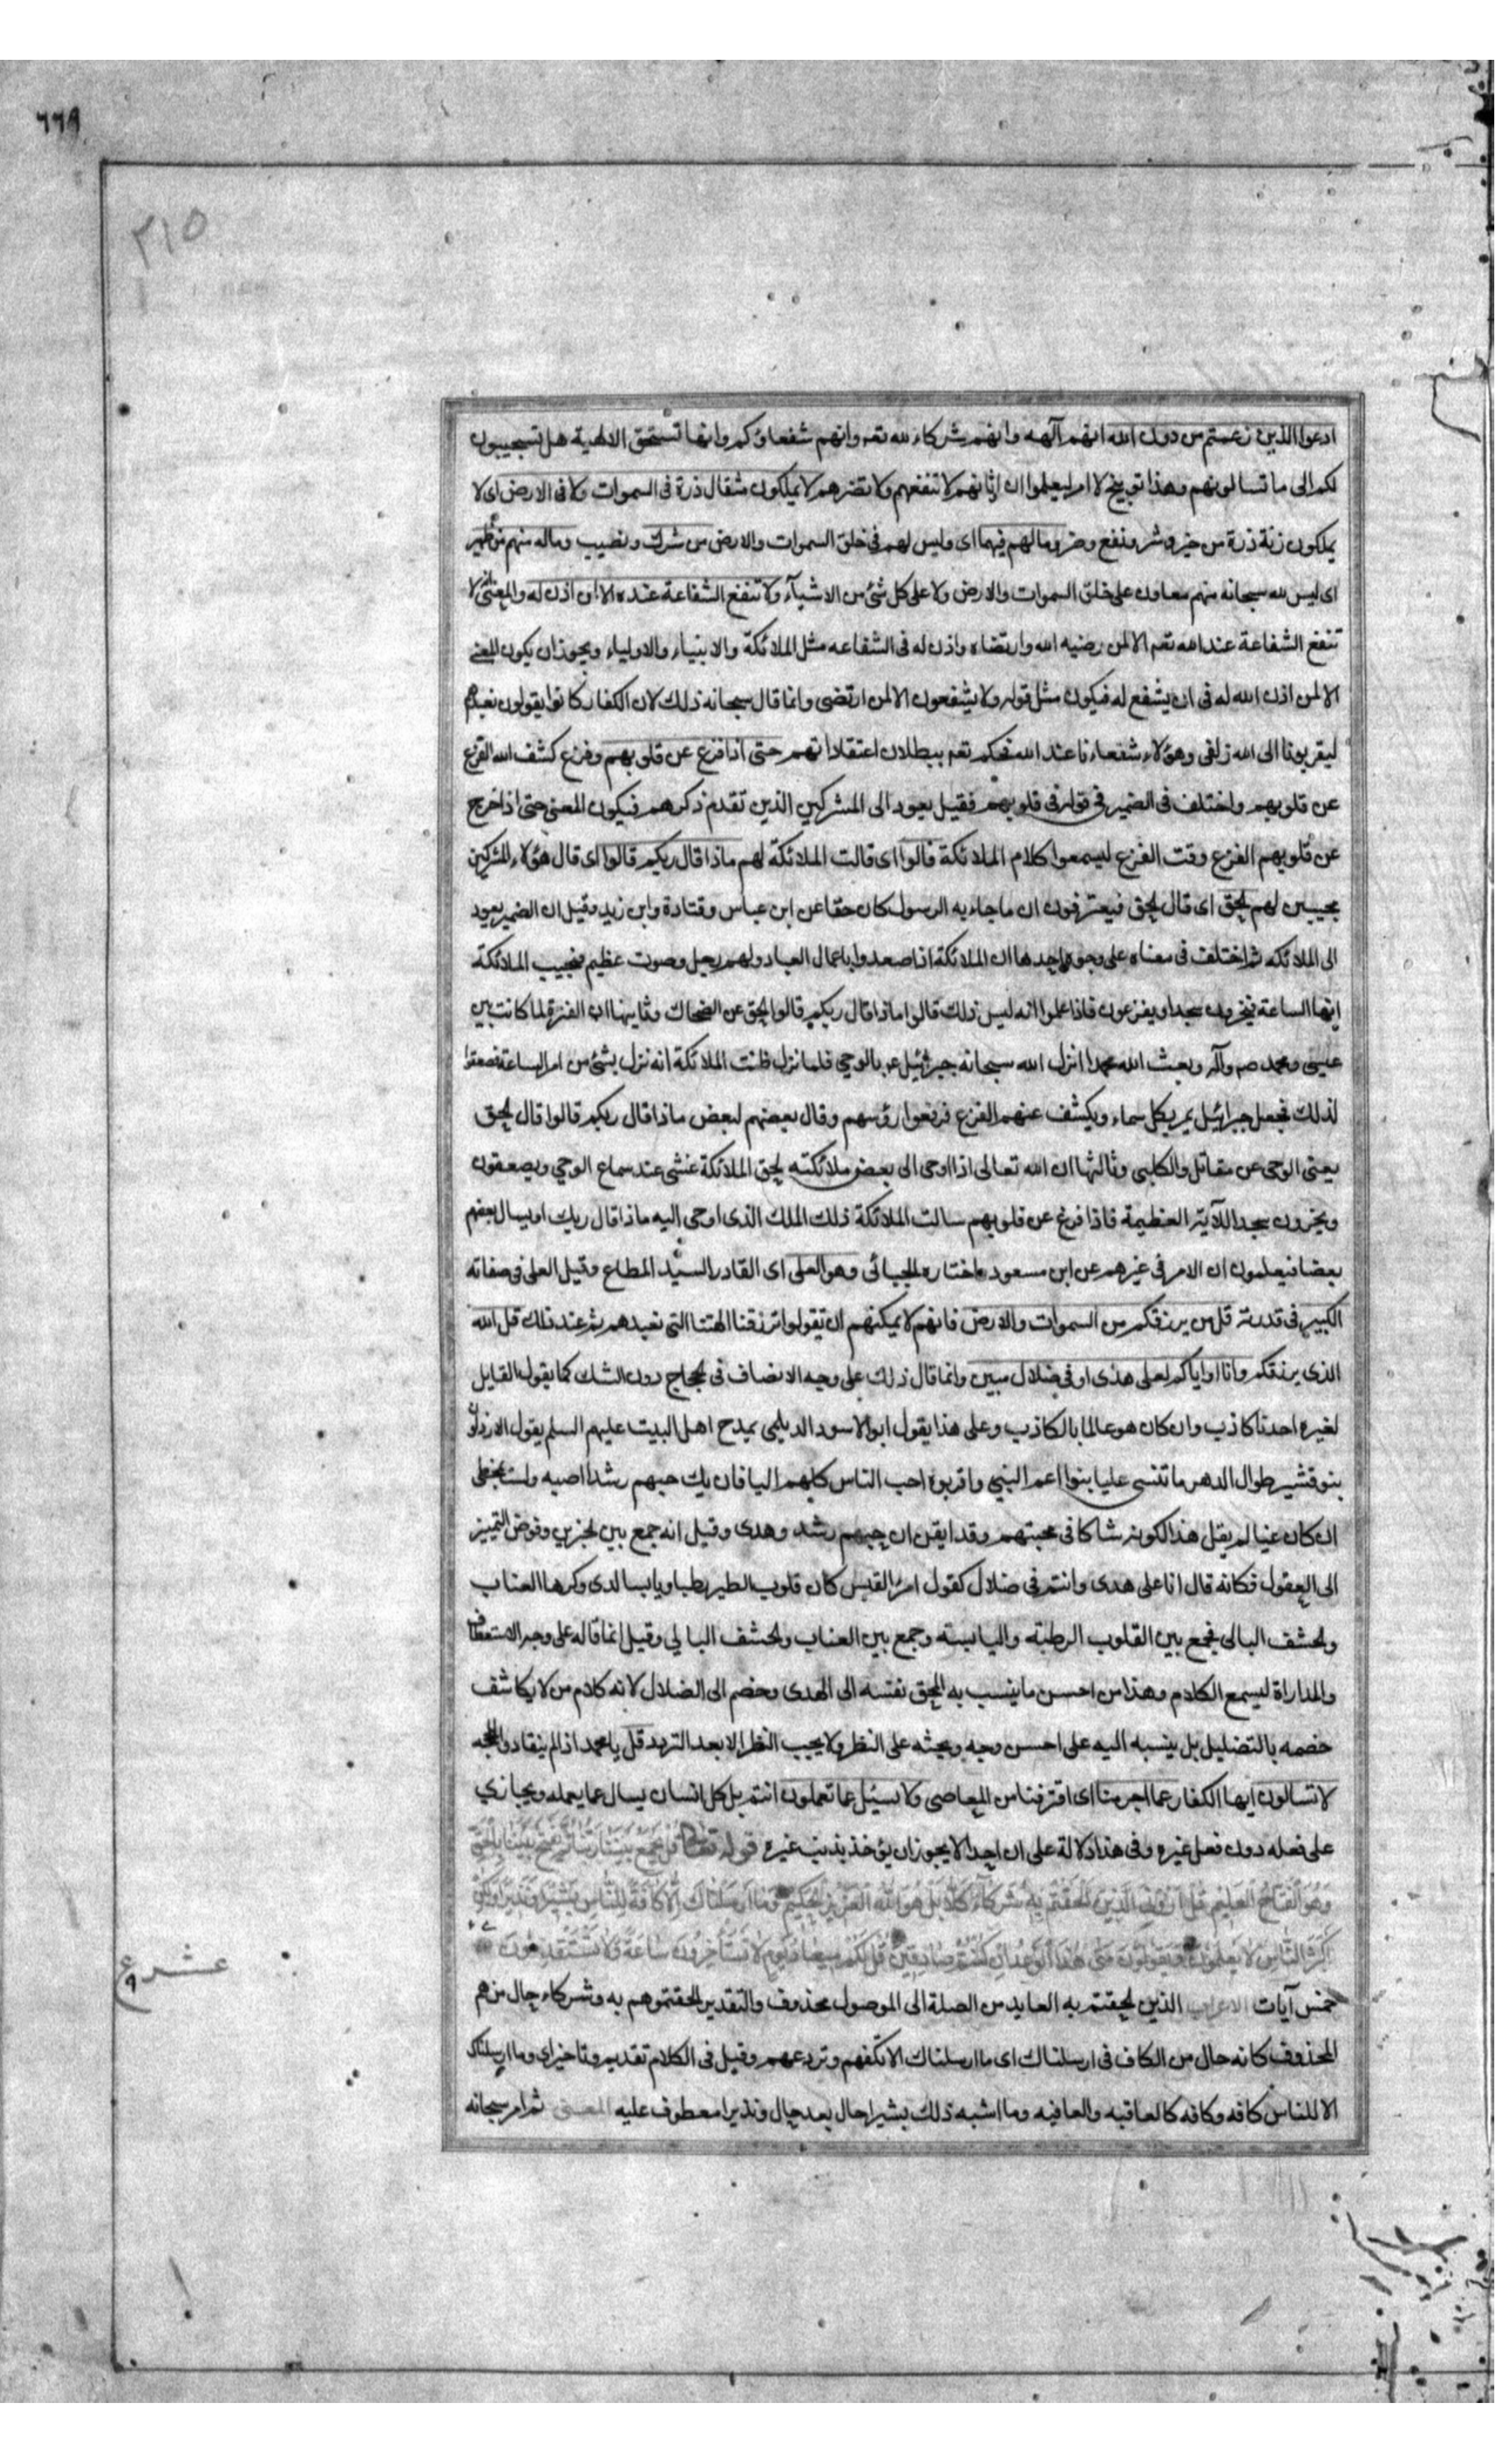 ٦٦٩
٣١٥
ادعوا الذين زعمتم من دون الله انهم آلهه وانهم شركاء لله تعه وانهم شفعاؤكم وانها تستحق الالهية هل تسجيبون
لكم الى ما تسالونهم وهذا توبيخ لا امر ليعلموا ان اوثانهم لا تنفعهم ولا تضرهم لا يملكون مثقال ذرة فى السموات ولا فى الارض اى لا
يملكون زنة ذرة من خير وشر ونفع وضر وما لهم فيهما اى وليس لهم فى خلق السموات والارض من شرك ونصيب وماله منهم من ظهير
اى ليس لله سبحانه منهم معاون على خلق السموات والارض ولا على كل شئ من الاشيآء ولا تنفع الشفاعة عنده الا لمن اذن له والمعنى انه لا
تنفع الشفاعة عند الله تعه الا لمن رضيه الله وارتضاه واذن له فى الشفاعه مثل الملائكة والانبياء والاولياء ويجوز ان يكون المعنى
الا لمن اذن الله له فى ان يشفع له فيكون مثل قوله ولا يشفعون الا لمن ارتضى وانما قال سبحانه ذلك لان الكفار كانوا يقولون نعبدهم
ليقربونا الى الله زلفى وهؤلاء شفعاءنا عند الله فحكم تعه ببطلان اعتقاداتهم حتى اذا فزع عن قلوبهم وفزع كشف الله الفزع
عن قلوبهم واختلف فى الضمير فى قوله فى قلوبهم فقيل يعود الى المشركين الذين تقدم ذكرهم فيكون المعنى حتى اذا اخرج
عن قلوبهم الفزع وقت الفزع ليسمعوا كلام الملائكة قالوا اى قالت الملائكة لهم ماذا قال ربكم قالوا اى قال هؤلاء المشركين
مجيبين لهم الحق اى قال الحق فيعترفون ان ما جاء به الرسول كان حقا عن ابن عباس وقتادة وابن زيد وقيل ان الضمير يعود
الى الملائكه ثم اختلف فى معناه على وجوه احدها ان الملائكة اذا صعدوا باعمال العباد ولهم زجل وصوت عظيم فتحسب الملائكة
انها الساعة فيخرون سجدا ويفزعون فاذا علموا انه ليس ذلك قالوا ماذا قال ربكم قالوا الحق عن الضحاك وثانيها ان الفترة لما كانت بين
عليسى ومحمد صم وآله وبعث الله محمدا انزل الله سبحانه جبرئيل عم بالوحى فلما نزل ظنت الملائكة انه نزل بشئ من امر الساعة فصعقوا
لذلك فجعل جبرائيل يمر بكل سماء ويكشف عنهم الفزع فرفعوا رؤسهم وقال بعضهم لبعض ماذا قال ربكم قالوا قال الحق
يعنى الوحى عن مقاتل والكلبى وثالثها ان الله تعالى اذا اوحى الى بعض ملائكته لحق الملائكة غشى عند سماع الوحى ويصعقون
ويخرون سجدا للآية العظيمة فاذا فزع عن قلوبهم سالت الملائكة ذلك الملك الذى اوحى اليه ماذا قال ربك او يسال بعضهم
بعضا فيعلمون ان الامر فى غيرهم عن ابن مسعود واختاره الجبائى وهو العلى اى القادر السيد المطاع وقيل العلى فى صفاته
الكبير فى قدرته قل من يرزقكم من السموات والارض فانهم لا يمكنهم ان تقولوا ترزقنا الهتنا التى نعبدهم ثم عند ذلك قل الله
الذى يرزقكم وانا او اياكم لعلى هدى او فى ضلال مبين وانما قال ذلك على وجه الانصاف فى الحجاج دون الشك كما يقول القايل
لغيره احدنا كاذب وان كان هو عالما بالكاذب وعلى هذا يقول ابو الاسود الديلمى يمدح اهل البيت عليهم السلم يقول الارذلون
بنو قشير طوال الدهر ما تنسى عليا بنوا اعم النبى واقربوه احب الناس كلهم اليا فان يك حبهم رشدا اصبه ولست بمخطى
ان كان غيا لم يقل هذا لكونه شاكا فى محبتهم وقد ايقن ان حبهم رشد وهدى وقيل انه جمع بين الخبرين وفوض التمييز
الى العقول فكانه قال انا على هدى وانتم فى ضلال كقول امرئ القيس كان قلوب الطير رطبا ويابسا لدى وكرها العناب
والحشف البالى فجمع بين القلوب الرطبة واليابسه وجمع بين العناب والحشف البالى وقيل انما قاله على وجه الاستعطاف
والمداراة ليسمع الكلام وهذا من احسن ما ينسب به المحق نفسه الى الهدى وخصم الى الضلال لانه كلام من لا يكاشف
خصمه بالتضليل بل ينسبه اليه على احسن وجه ويحثه على النظر ولا يجب النظر الا بعد التردد قل يا محمد اذا لم ينقادوا للحجه
لا تسالون ايها الكفار عما اجرمنا اى اقترفنا من المعاصى ولا نسئل عما تعملون انتم بل كل انسان يسال عما يعمله ويجازى
على فعله دون فعل غيره وفى هذا دلالة على ان احدا لا يجوز ان يؤخذ بذنب غيره قوله تعالى قُلْ يَجْمَعُ بَيْنَنَا رَبُّنَا ثُمَّ يَفْتَحُ بَيْنَنَا بِالْحَقِّ
وَهُوَ الْفَتَّاحُ الْعَلِيمُ قُلْ أَرُونِيَ الَّذِينَ أَلْحَقْتُمْ بِهِ شُرَكَاءَ كَلَّا بَلْ هُوَ اللهُ الْعَزِيزُ الْحَكِيمُ وَمَا أَرْسَلْنَاكَ إِلَّا كَافَّةً لِلنَّاسِ بَشِيرًا وَنَذِيرًا وَلَكِنَّ
أَكْثَرَ النَّاسِ لَا يَعْلَمُونَ وَيَقُولُونَ مَتَى هَذَا الْوَعْدُ إِنْ كُنْتُمْ صَادِقِينَ قُلْ لَكُمْ مِيعَادُ يَوْمٍ لَا تَسْتَأْخِرُونَ عَنْهُ سَاعَةً وَلَا تَسْتَقْدِمُونَ
عشر ع
خمس آيات الاعراب الذين الحقتم به العايد من الصلة الى الموصول محذوف والتقدير الحقتموهم به وشركاء حال من هم
المحذوف كانه حال من الكاف فى ارسلناك اى ما ارسلناك الا تكفهم وتردعهم وقيل فى الكلام تقديم وتاخير اى وما ارسلناك
الا للناس كافه وكافه كالعاقبه والعافيه وما اشبه ذلك بشيرا حال بعد حال ونذيرا معطوف عليه المعنى ثم امر سبحانه